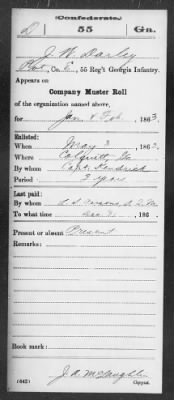 (Confederate.)
D 55 Ga.
J. W. Darby
Pvt, Co. C, 55 Reg't Georgia Infantry.
Appears on
Company Muster Roll
of the organization named above,
for Jan & Feb, 1863
Enlisted:
When May 3, 1862
Where Colquitt, Ga
By whom Capt. Kendrick
Period 3 years
Last paid:
By whom
To what time Dec 31, 186
Present or absent Present
Remarks:
Book mark:
J. A. McLaughlin
(642) Copyist.